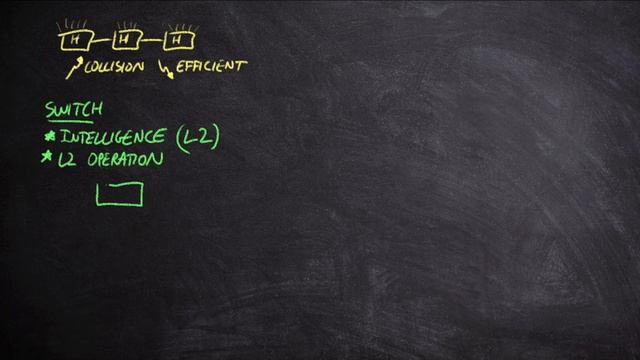 H H H
COLLISION EFFICIENT
SWITCH
* INTELLIGENCE (L2)
* L2 OPERATION